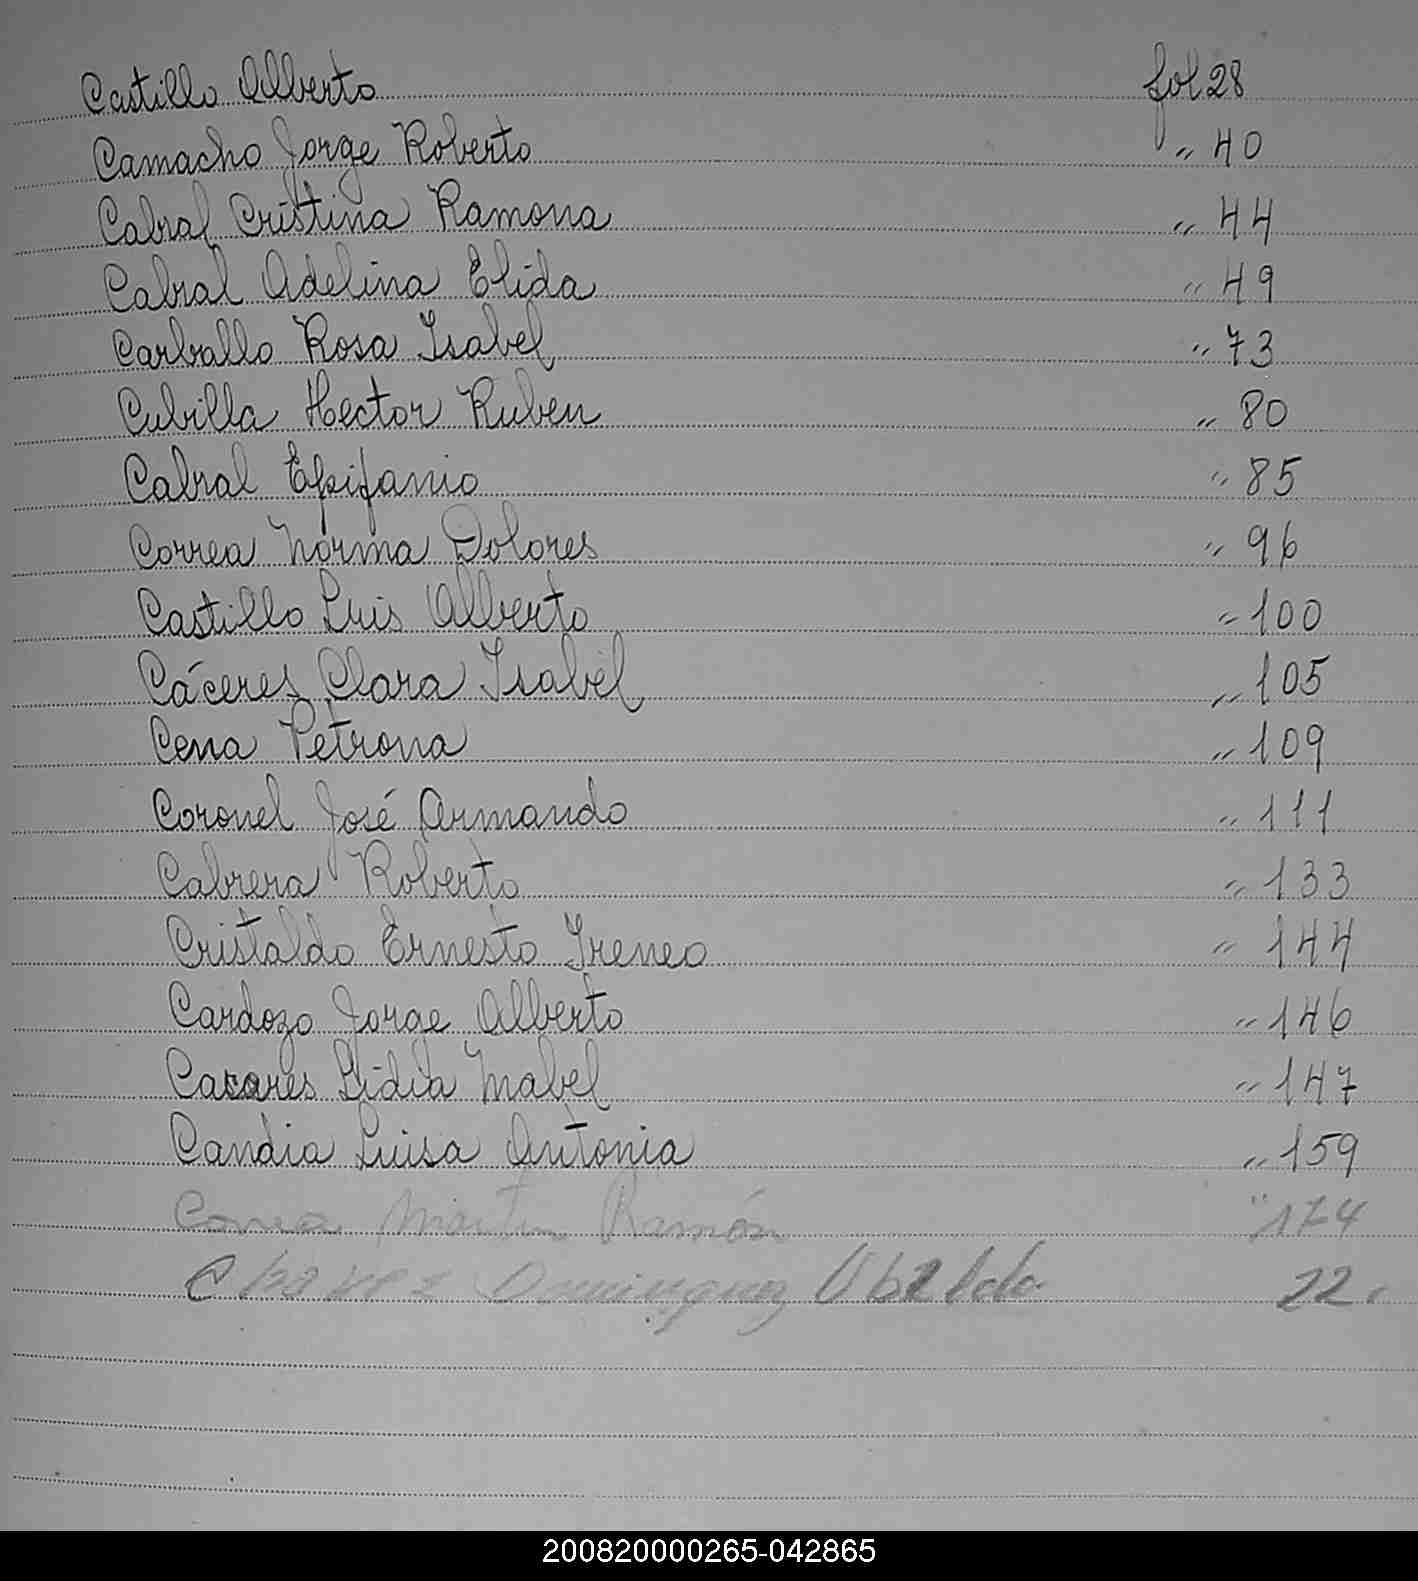 Castillo Alberto fol 28
Camacho Jorge Roberto " 40
Cabral Cristina Ramona " 44
Cabral Adelina Elida " 49
Carballo Rosa Isabel " 73
Cubilla Hector Ruben " 80
Cabral Epifanio " 85
Correa Norma Dolores " 96
Castillo Luis Alberto " 100
Cáceres Clara Isabel " 105
Cena Petrona " 109
Coronel José Armando " 111
Cabrera Roberto " 133
Cristaldo Ernesto Ireneo " 144
Cardozo Jorge Alberto " 146
Casares Lidia Mabel " 147
Candia Luisa Antonia " 159
Correa Martin Ramón " 174
Chavez Dominguez Ubaldo 22
200820000265-042865